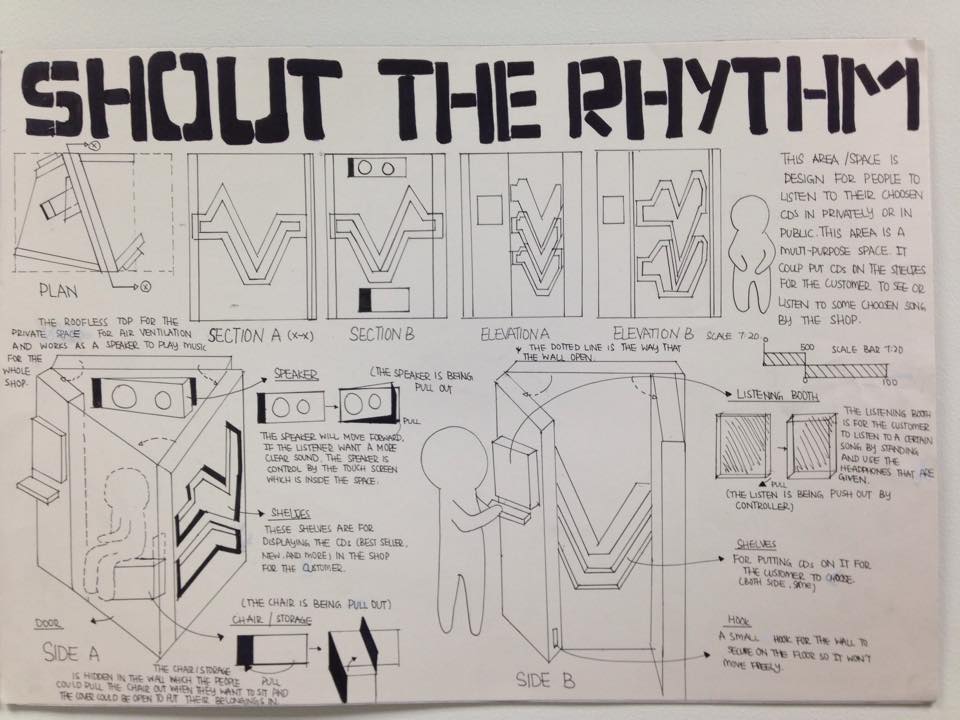 SHOUT THE RHYTHM
X
X
PLAN
SECTION A (X-X)
SECTION B
ELEVATION A
ELEVATION B
SCALE 1:20
THIS AREA /SPACE IS
DESIGN FOR PEOPLE TO
LISTEN TO THEIR CHOOSEN
CDs IN PRIVATELY OR IN
PUBLIC. THIS AREA IS A
MULTI-PURPOSE SPACE. IT
COULD PUT CDs ON THE SHELVES
FOR THE CUSTOMER TO SEE OR
LISTEN TO SOME CHOOSEN SONG
BY THE SHOP.
500
SCALE BAR 1:20
100
THE ROOFLESS TOP FOR THE
PRIVATE SPACE FOR AIR VENTILATION
AND WORKS AS A SPEAKER TO PLAY MUSIC
FOR THE
WHOLE
SHOP.
SPEAKER
(THE SPEAKER IS BEING
PULL OUT
PULL
THE SPEAKER WILL MOVE FORWARD,
IF THE LISTENER WANT A MORE
CLEAR SOUND. THE SPEAKER IS
CONTROL BY THE TOUCH SCREEN
WHICH IS INSIDE THE SPACE.
SHELVES
THESE SHELVES ARE FOR
DISPLAYING THE CDs (BEST SELLER,
NEW, AND MORE) IN THE SHOP
FOR THE CUSTOMER.
(THE CHAIR IS BEING PULL OUT)
CHAIR / STORAGE
PULL
DOOR
SIDE A
THE CHAIR/STORAGE
IS HIDDEN IN THE WALL WHICH THE PEOPLE
COULD PULL THE CHAIR OUT WHEN THEY WANT TO SIT AND
THE COVER COULD BE OPEN TO PUT THEIR BELONGINGS IN.
THE DOTTED LINE IS THE WAY THAT
THE WALL OPEN.
LISTENING BOOTH
PULL
(THE LISTEN IS BEING PUSH OUT BY
CONTROLLER)
THE LISTENING BOOTH
IS FOR THE CUSTOMER
TO LISTEN TO A CERTAIN
SONG BY STANDING
AND USE THE
HEADPHONES THAT ARE
GIVEN.
SHELVES
FOR PUTTING CDs ON IT FOR
THE CUSTOMER TO CHOOSE.
(BOTH SIDE, SAME)
HOOK
A SMALL HOOK FOR THE WALL TO
SECURE ON THE FLOOR SO IT WON'T
MOVE FREELY.
SIDE B